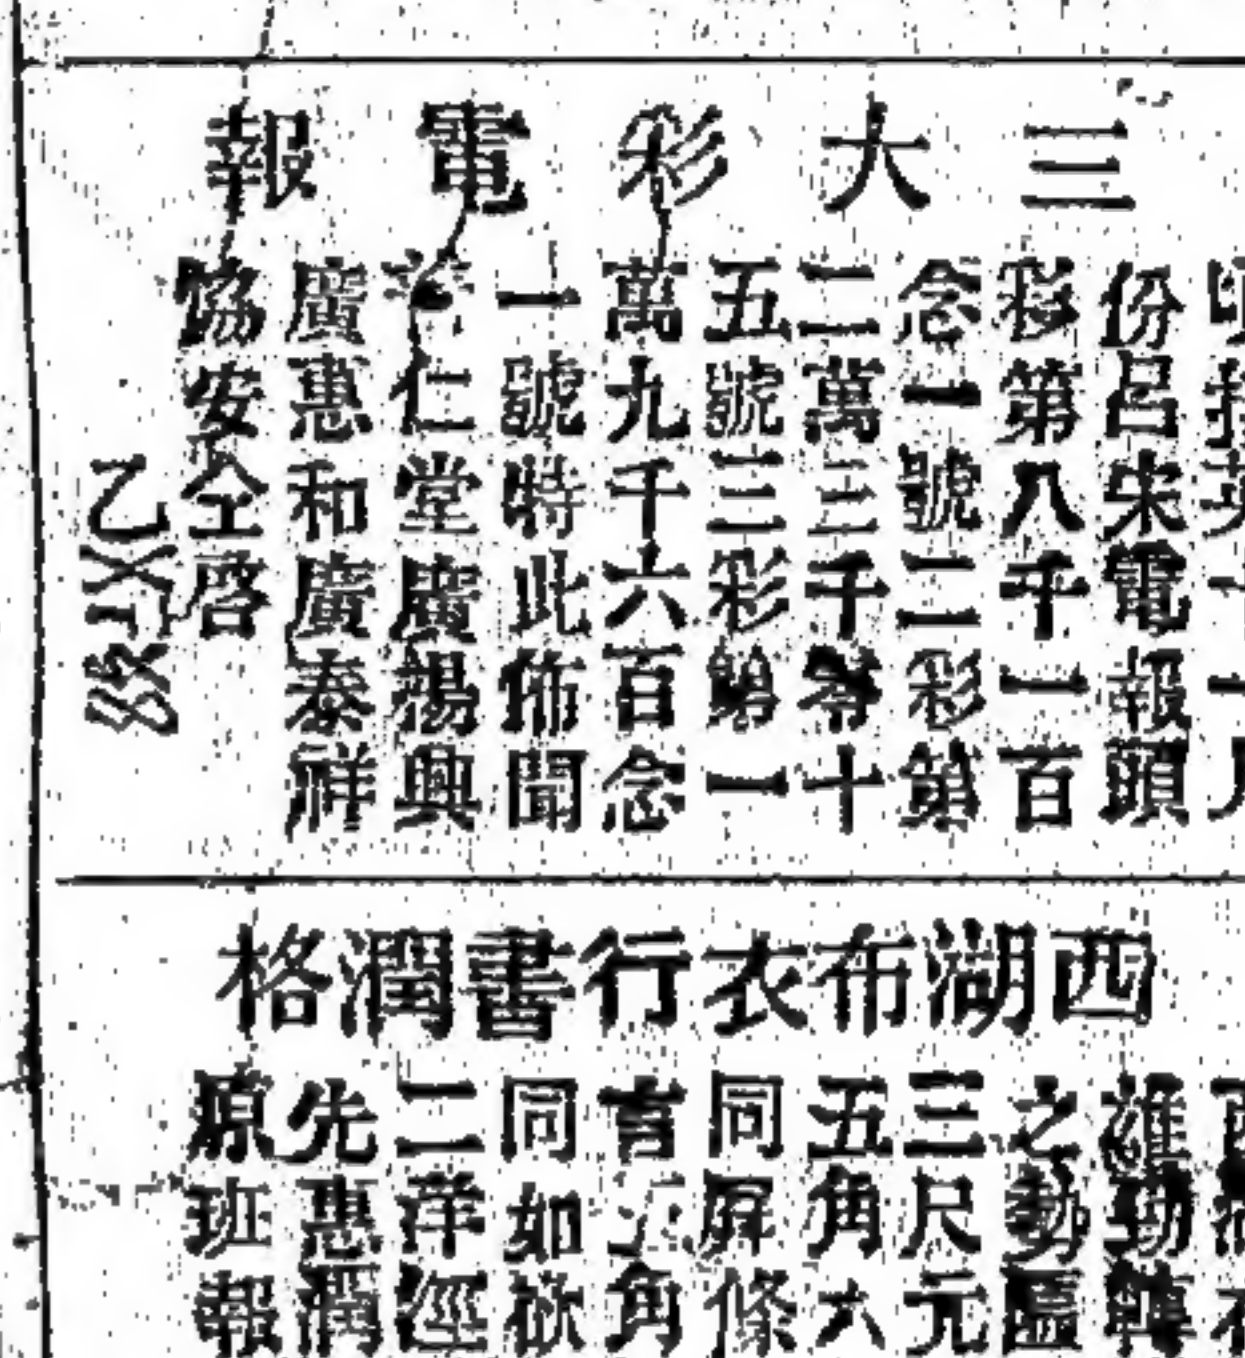 三大彩電報
份呂宋電報頭
彩第八千一百
念一號二彩第
二萬三千零十
五號三彩第一
萬九千六百念
一號特此佈聞
仁堂廣揚興
廣惠和廣泰祥
協安仝啓
西湖布衣行書潤格
雄勁
之勢匾
三尺元
五角六
同屏條
角
同如欲
二洋逕
先惠潤
原班報